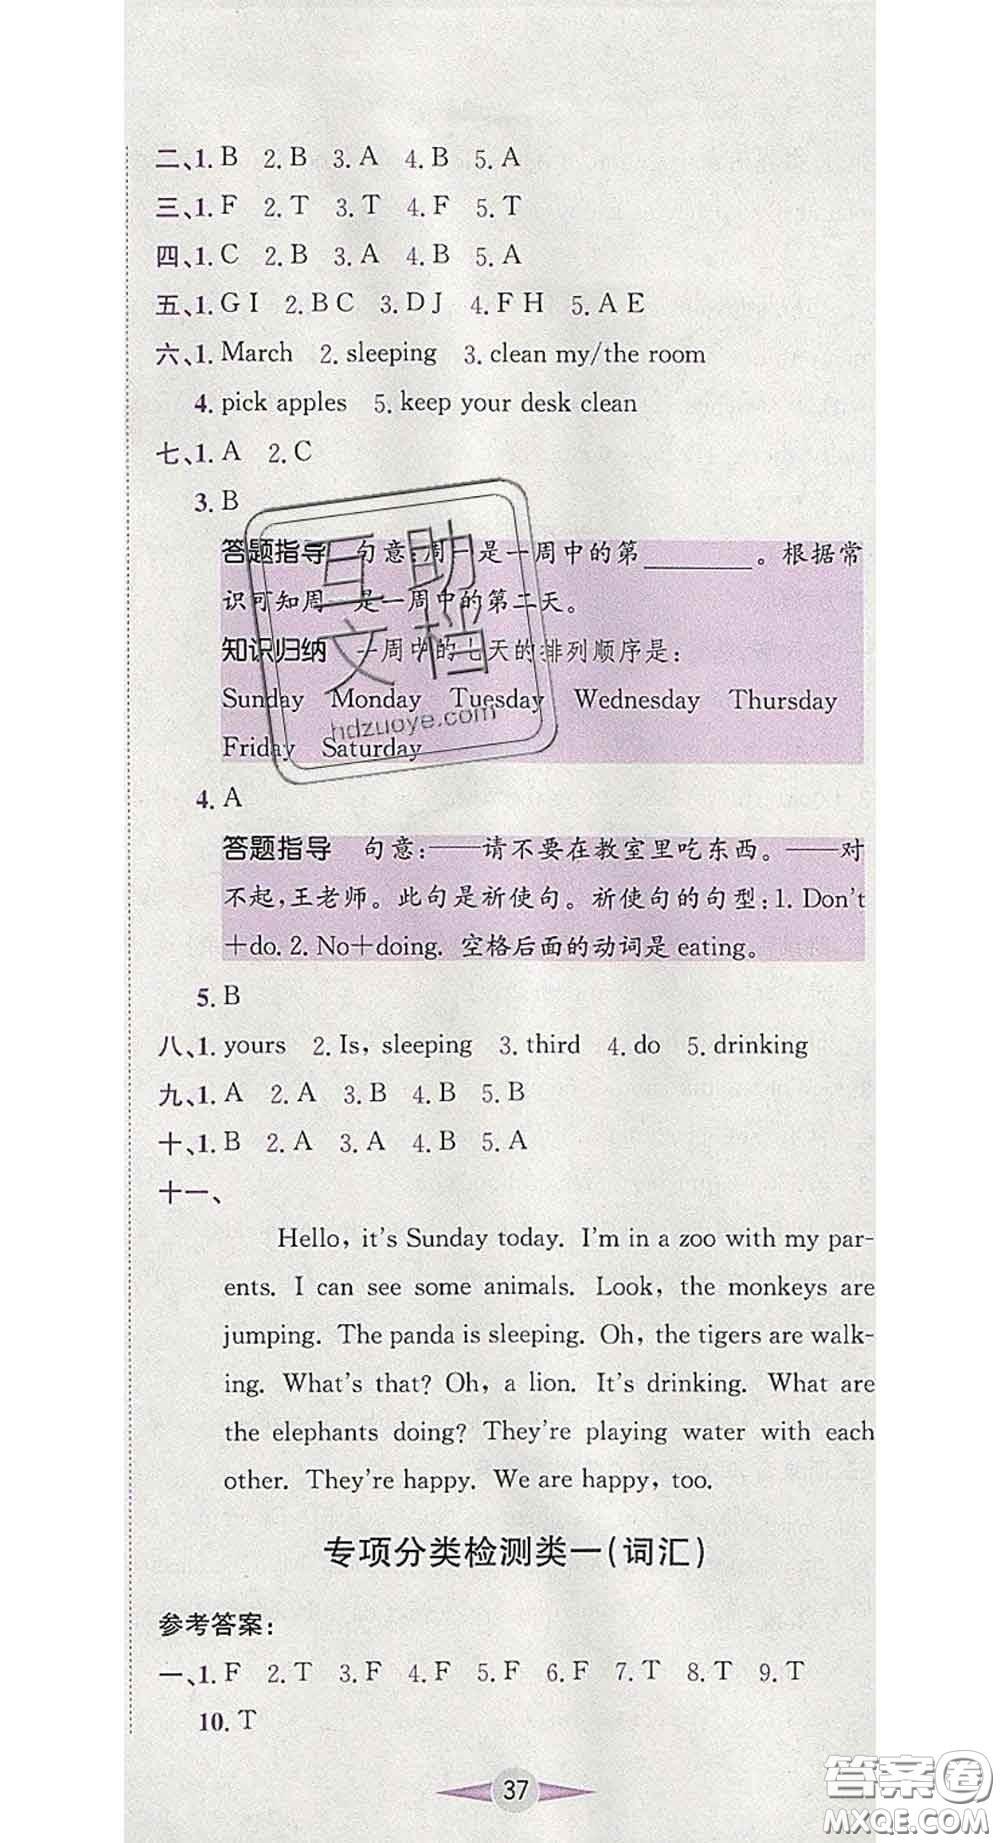 二、1. B 2. B 3. A 4. B 5. A
三、1. F 2. T 3. T 4. F 5. T
四、1. C 2. B 3. A 4. B 5. A
五、1. G I 2. B C 3. D J 4. F H 5. A E
六、1. March 2. sleeping 3. clean my/the room
4. pick apples 5. keep your desk clean
七、1. A 2. C
3. B
答题指导 句意:周一是一周中的第________。根据常
识可知周一是一周中的第二天。
知识归纳 一周中的七天的排列顺序是:
Sunday Monday Tuesday Wednesday Thursday
Friday Saturday
4. A
答题指导 句意:——请不要在教室里吃东西。——对
不起,王老师。此句是祈使句。祈使句的句型:1. Don't
+do. 2. No+doing. 空格后面的动词是 eating。
5. B
八、1. yours 2. Is, sleeping 3. third 4. do 5. drinking
九、1. A 2. A 3. B 4. B 5. B
十、1. B 2. A 3. A 4. B 5. A
十一、
Hello, it's Sunday today. I'm in a zoo with my par-
ents. I can see some animals. Look, the monkeys are
jumping. The panda is sleeping. Oh, the tigers are walk-
ing. What's that? Oh, a lion. It's drinking. What are
the elephants doing? They're playing water with each
other. They're happy. We are happy, too.
专项分类检测类一(词汇)
参考答案:
一、1. F 2. T 3. F 4. F 5. F 6. F 7. T 8. T 9. T
10. T
37
互助
文档
hdzuoye.com
答案圈
MXQE.COM